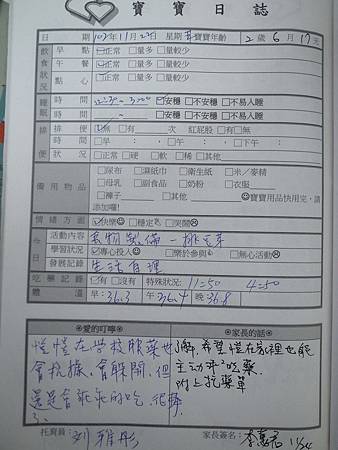 寶寶日誌
日 期 102年11月23日 星期 寶寶年齡 2歲6月17天
飲食狀況
早點 ☑正常 □量多 □量較少
午餐 ☑正常 □量多 □量較少
點心 ☑正常 □量多 □量較少
睡眠
時間 ~ 3:00 ☑安穩 □不安穩 □不易入睡
時間 ~ □安穩 □不安穩 □不易入睡
排便
排便 ☑無 □有 次 紅屁股 □有 □無
時間 □早: , □午: , □下午:
狀況 □正常 □硬 □軟 □稀 □其他
備用物品
□尿布 □濕紙巾 □衛生紙 □米/麥精
□母乳 □副食品 □奶粉 □衣服
□褲子 □其他 ☺寶寶用品快用完,請
添加囉!
情緒方面 ☑快樂☺ □穩定 □哭鬧☹
今日
活動內容 食物製備-挑豆芽
學習狀況 ☑專心投入☺ □樂於參與 □無心活動☹
發展記錄 生活自理
吃藥記錄 ☑有 □沒有 特殊狀況: 11=50 4=50
體溫 早: 36.3 午 36.4 晚 36.8
❀愛的叮嚀❀
愷愷在學校服藥也
會抗拒、會躲開,但
還是會乖乖的吃,很棒
家長的話
了解,希望愷在家裡也能
主動來吃藥。
附上托藥單
托育員: 劉雅彤
家長簽名: 李惠君 11/24